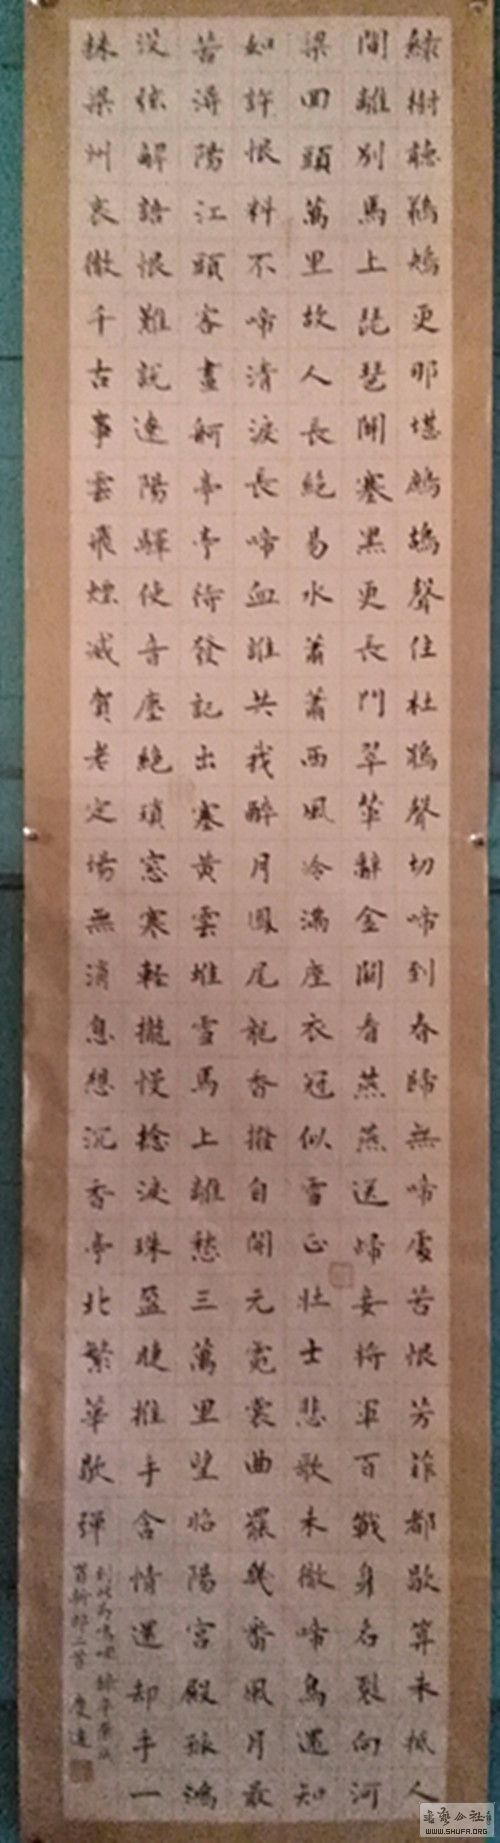 綠樹聽鵜鴂更那堪鷓鴣聲住杜鵑聲切啼到春歸無啼處苦恨芳菲都歇算未抵人
間離別馬上琵琶關塞黑更長門翠輦辭金闕看燕燕送歸妾將軍百戰身名裂向河
梁回頭萬里故人長絕易水蕭蕭西風冷滿座衣冠似雪正壯士悲歌未徹啼鳥還知
如許恨料不啼清淚長啼血誰共我醉月鳳尾龍香撥自開元霓裳曲罷幾番風月最
苦潯陽江頭客畫舸亭亭待發記出塞黃雲堆雪馬上離愁三萬里望昭陽宮殿孤鴻
沒弦解語恨難說遼陽驛使音塵絕瑣窗寒輕攏慢撚淚珠盈睫推手含情還却手一
抹梁州哀徹千古事雲飛煙滅賀老定場無消息想沉香亭北繁華歇彈
到此為嗚咽 錄辛棄疾
賀新郎二首 慶達
WWW.SHUFA.ORG